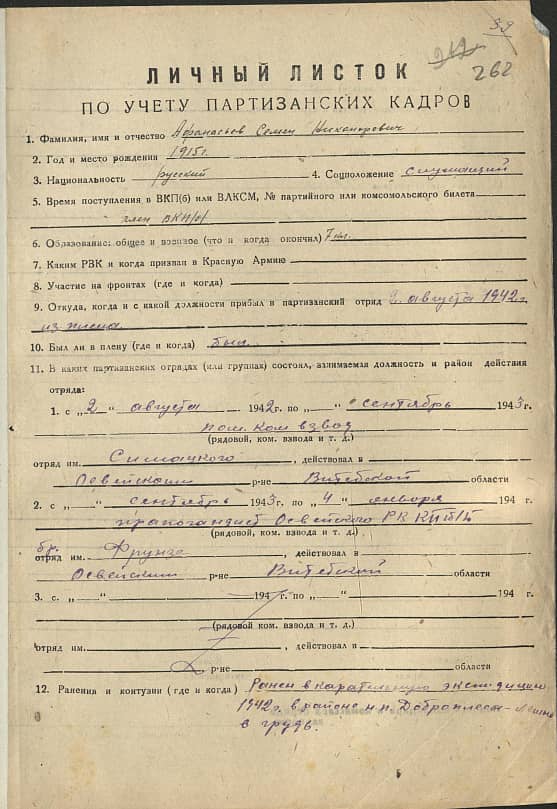 39
262
262
ЛИЧНЫЙ ЛИСТОК
ПО УЧЕТУ ПАРТИЗАНСКИХ КАДРОВ
1. Фамилия, имя и отчество Афанасьев Семен Никанорович
2. Год и место рождения 1915г.
3. Национальность русский 4. Соцположение служащий
5. Время поступления в ВКП(б) или ВЛКСМ, № партийного или комсомольского билета
член ВКП/б/
6. Образование: общее и военное (что и когда окончил) 7 кл.
7. Каким РВК и когда призван в Красную Армию
8. Участие на фронтах (где и когда)
9. Откуда, когда и с какой должности прибыл в партизанский отряд 2. августа 1942г.
из плена
10. Был ли в плену (где и когда) Был.
11. В каких партизанских отрядах (или группах) состоял, занимаемая должность и район действия
отряда:
1. с „2" августа 1942г. по „ " сентябрь 1943г.
пом. ком взвод
(рядовой, ком. взвода и т. д.)
отряд им. , действовал в
Освейском р-не Витебской области
2. с „ " сентябрь 1943г. по „4" января 194 г.
пропогандист Освейского РК КП/б/Б
(рядовой, ком. взвода и т. д.)
бр.
отряд им. Фрунзе , действовал в
Освейский р-не Витебский области
3. с. „ " 194 г. по „ " 194 г.
(рядовой, ком. взвода и т. д.)
отряд им. , действовал в
р-не области
12. Ранения и контузии (где и когда) Ранен в каратильную экспидицию
1942г. в районе н.п.
в грудь.